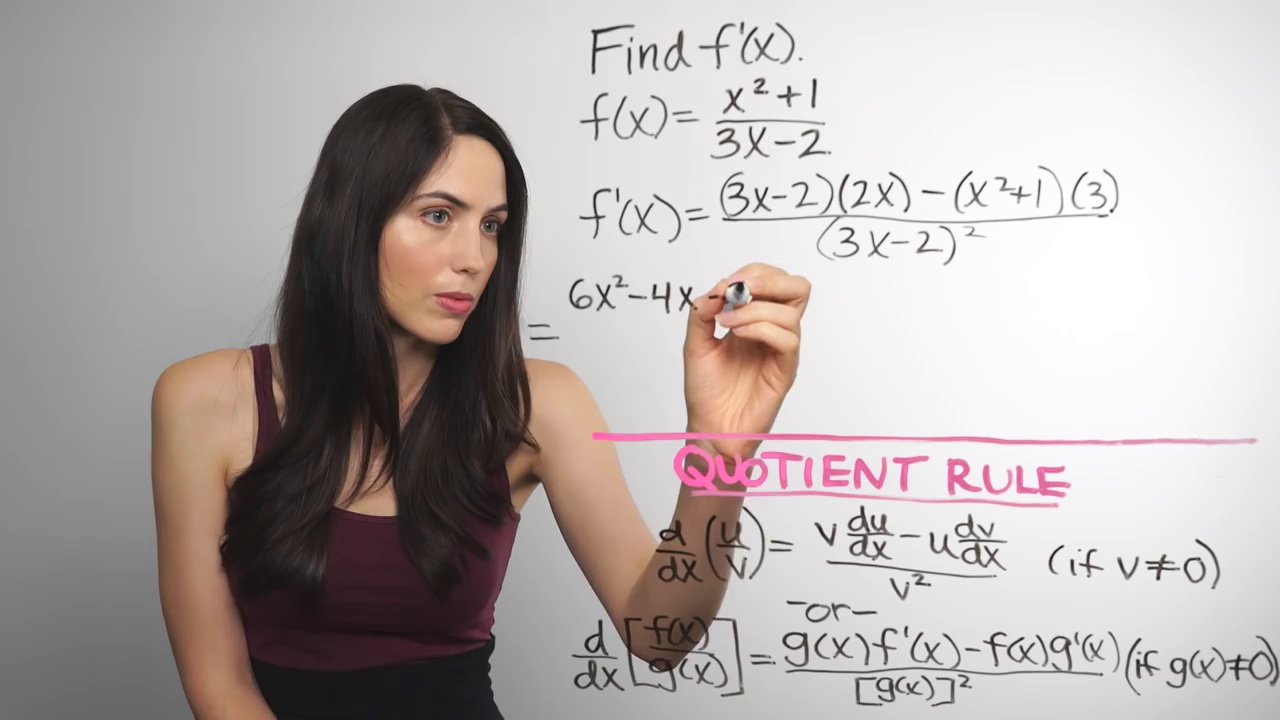 Find f'(x).
f(x)= x²+1 / 3x-2
f'(x)= (3x-2)(2x) - (x²+1)(3) / (3x-2)²
= 6x²-4x -
QUOTIENT RULE
d/dx (u/v) = v du/dx - u dv/dx / v² (if v≠0)
-or-
d/dx [f(x)/g(x)] = g(x)f'(x)-f(x)g'(x) / [g(x)]² (if g(x)≠0)